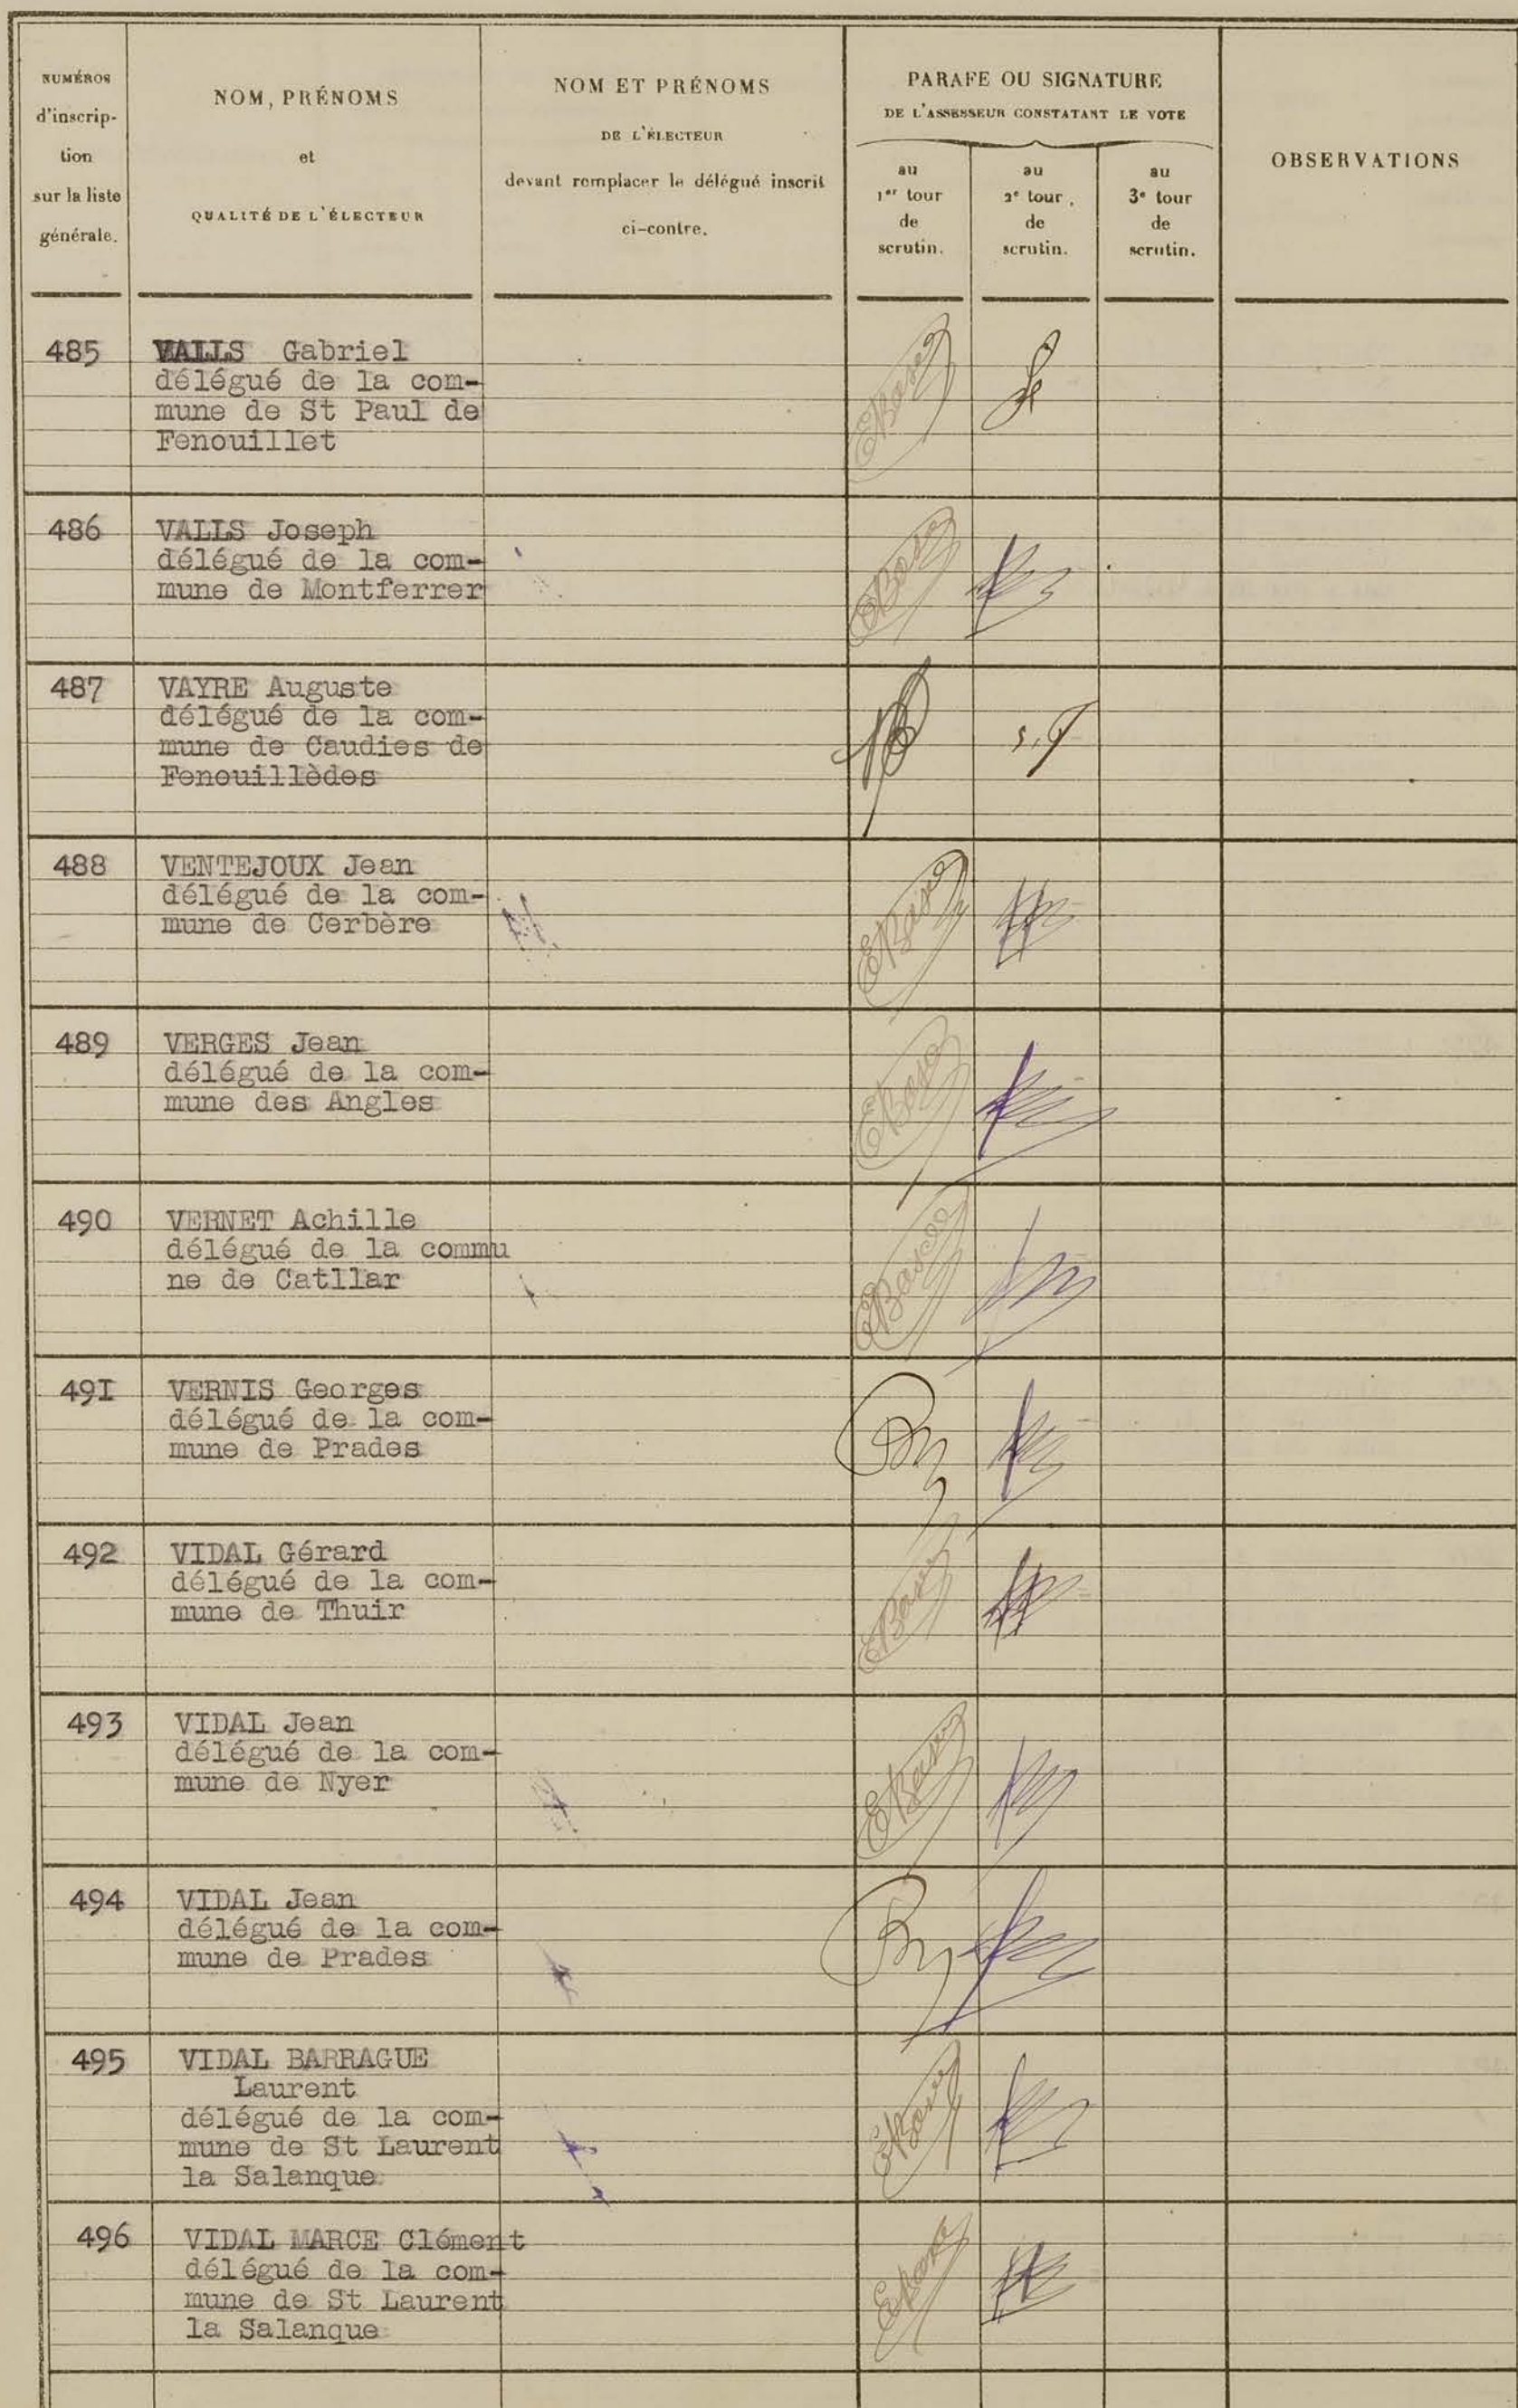 NUMÉROS
d'inscrip-
tion
sur la liste
générale.
NOM, PRÉNOMS
et
QUALITÉ DE L'ÉLECTEUR
NOM ET PRÉNOMS
DE L'ÉLECTEUR
devant remplacer le délégué inscrit
ci-contre.
PARAFE OU SIGNATURE
DE L'ASSESSEUR CONSTATANT LE VOTE
au
1er tour
de
scrutin.
au
2e tour
de
scrutin.
au
3e tour
de
scrutin.
OBSERVATIONS
485
VALLS Gabriel
délégué de la com-
mune de St Paul de
Fenouillet
486
VALLS Joseph
délégué de la com-
mune de Montferrer
487
VAYRE Auguste
délégué de la com-
mune de Caudies de
Fenouillèdes
488
VENTEJOUX Jean
délégué de la com-
mune de Cerbère
489
VERGES Jean
délégué de la com-
mune des Angles
490
VERNET Achille
délégué de la commu
ne de Catllar
49I
VERNIS Georges
délégué de la com-
mune de Prades
492
VIDAL Gérard
délégué de la com-
mune de Thuir
493
VIDAL Jean
délégué de la com-
mune de Nyer
494
VIDAL Jean
délégué de la com-
mune de Prades
495
VIDAL BARRAGUE
Laurent
délégué de la com-
mune de St Laurent
la Salanque
496
VIDAL MARCE Clément
délégué de la com-
mune de St Laurent
la Salanque